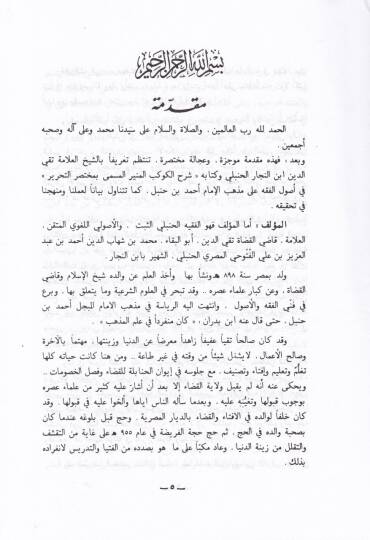 بسم الله الرحمن الرحيم
مقدّمة
الحمد لله رب العالمين . والصلاة والسلام على سيّدنا محمد وعلى آله وصحبه
أجمعين .
وبعد ، فهذه مقدمة موجزة ، وعجالة مختصرة ، تنتظم تعريفاً بالشيخ العلامة تقي
الدين ابن النجار الحنبلي وكتابه « شرح الكوكب المنير المسمى بمختصر التحرير »
في أصول الفقه على مذهب الإمام أحمد بن حنبل . كما تتناول بياناً لعملنا ومنهجنا
في تحقيقه .
المؤلف : أما المؤلف فهو الفقيه الحنبلي الثبت . والأصولي اللغوي المتقن .
العلامة . قاضي القضاة تقي الدين . أبو البقاء . محمد بن شهاب الدين أحمد بن عبد
العزيز بن علي الفُتُوحي المصري الحنبلي . الشهير بابن النجار .
ولد بمصر سنة ٨٩٨ هـ ونشأ بها . وأخذ العلم عن والده شيخ الإسلام وقاضي
القضاة . وعن كبار علماء عصره .. وقد تبحر في العلوم الشرعية وما يتعلق بها . وبرع
في فنّي الفقه والأصول . وانتهت اليه الرياسة في مذهب الامام المبجل أحمد بن
حنبل . حتى قال عنه ابن بدران : « كان منفرداً في علم المذهب » .
وقد كان صالحاً تقياً عفيفاً زاهداً معرضاً عن الدنيا وزينتها . مهتماً بالآخرة
وصالح الأعمال . لا يشغل شيئاً من وقته في غير طاعة .. ومن هنا كانت حياته كلها
تعلُّم وتعليم وإفتاء وتصنيف . مع جلوسه في إيوان الحنابلة للقضاء وفصل الخصومات ..
ويحكى عنه أنه لم يقبل ولاية القضاء إلا بعد أن أشار عليه كثير من علماء عصره
بوجوب قبولها وتعيُّنه عليه . وبعدما سأله الناس اياها وألحّوا عليه في قبولها . وقد
كان خلفاً لوالده في الافتاء والقضاء بالديار المصرية . وحج قبل بلوغه عندما كان
بصحبة والده في الحج . ثم حج حجة الفريضة في عام ٩٥٥ هـ على غاية من التقشف
والتقلل من زينة الدنيا . وعاد مكبّاً على ما هو بصدده من الفتيا والتدريس لانفراده
بذلك .
— ٥ —